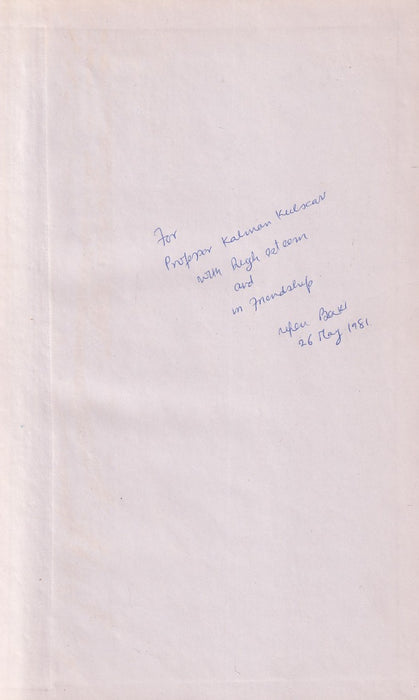 For
Professor Kalman Kulscar
with high esteem
and
in friendship
Upen Baxi
26 May 1981